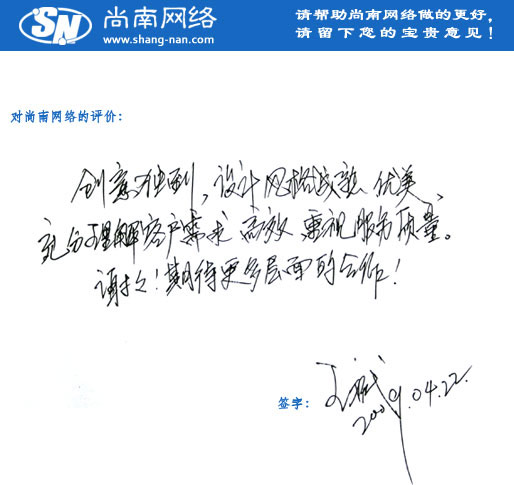 SN 尚南网络
www.shang-nan.com
请帮助尚南网络做的更好，
请留下您的宝贵意见！
对尚南网络的评价：
创意独到，设计风格成熟优美、
充分理解客户需求 高效 重视服务质量。
谢谢！期待更多层面的合作！
签字：
2009.04.22.